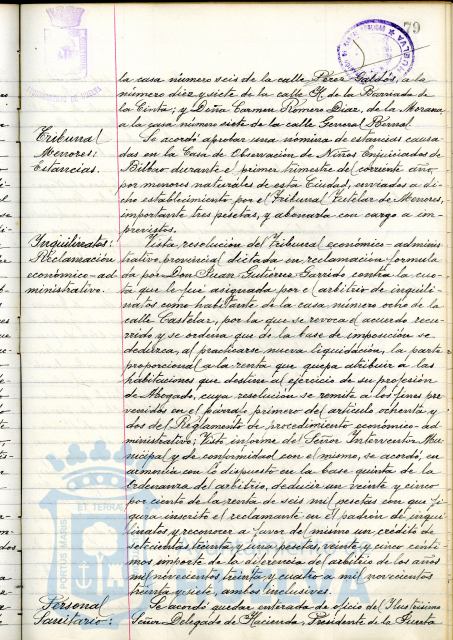 79
la casa número seis de la calle Pérez Galdós, a la
número diez y siete de la calle H. de la Barriada de
la Cinta; y Doña Carmen Romero Díaz, de la Morana
a la casa número siete de la calle General Bernal.
Tribunal
Menores:
Estancias.
Se acordó aprobar una nómina de estancias causa-
das en la Casa de Observación de Niños Enjuiciados de
Bilbao durante el primer trimestre del corriente año,
por menores naturales de esta Ciudad, enviados a di-
cho establecimiento por el Tribunal Tutelar de Menores,
importante tres pesetas, y abonarla con cargo a im-
previstos.
Inquilinatos:
Reclamación
económico-ad-
ministrativo.
Vista resolución del Tribunal económico-adminis-
trativo provincial dictada en reclamación formula-
da por Don Juan Gutiérrez Garrido contra la cuo-
ta que le fué asignada por el arbitrio de inquili-
natos como habitante de la casa número ocho de la
calle Castelar, por la que se revoca el acuerdo recu-
rrido y se ordena que de la base de imposición se
deduzca, al practicarse nueva liquidación, la parte
proporcional a la renta que quepa atribuir a las
habitaciones que destine al ejercicio de su profesión
de Abogado, cuya resolución se remite a los fines pre-
venidos en el párrafo primero del artículo ochenta y
dos del Reglamento de procedimiento económico-ad-
ministrativo; Visto informe del Señor Interventor Mu-
nicipal y de conformidad con el mismo, se acordó, en
armonía con lo dispuesto en la base quinta de la
Ordenanza del arbitrio, deducir un veinte y cinco
por ciento de la renta de seis mil pesetas con que fi-
gura inscrito el reclamante en el padrón de inqui-
linatos y reconocer a favor del mismo un crédito de
setecientas treinta y una pesetas, veinte y cinco cénti-
mos importe de la diferencia del arbitrio de los años
mil novecientos treinta y cuatro a mil novecientos
treinta y siete, ambos inclusives.
Personal
Sanitario:
Se acordó quedar enterada de oficio del Ilustrísimo
Señor Delegado de Hacienda, Presidente de la Junta
PORTUS MARIS
ET TERRAE